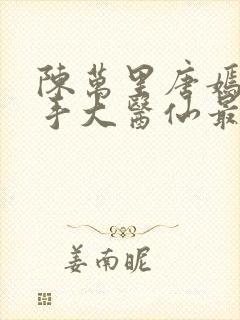 陳萬里唐嫣
手大醫仙最
姜南昵